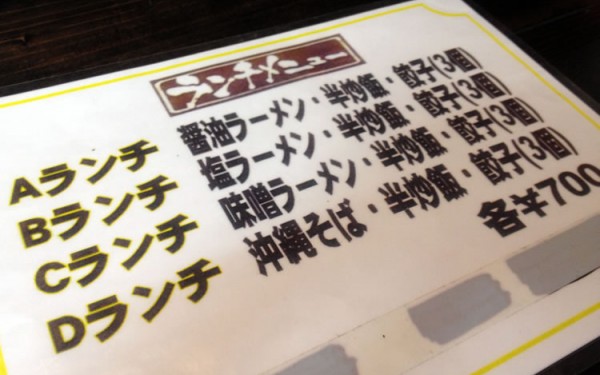 Aランチ 醤油ラーメン・半炒飯・餃子(3個)
Bランチ 塩ラーメン・半炒飯・餃子(3個)
Cランチ 味噌ラーメン・半炒飯・餃子(3個)
Dランチ 沖縄そば・半炒飯・餃子(3個)
各¥700